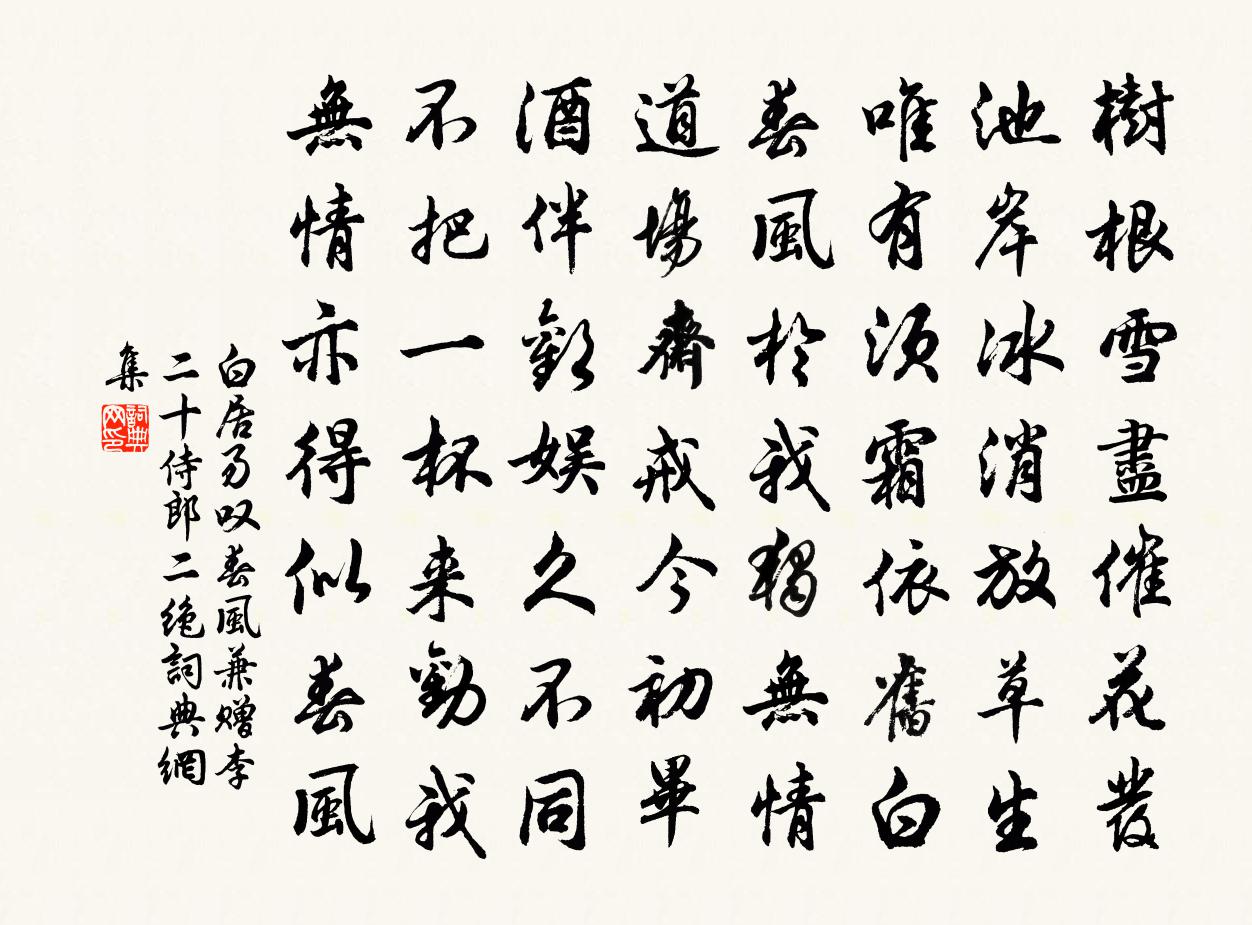 樹根雪盡催花發
池岸冰消放草生
唯有須霜依舊白
春風於我獨無情
道場齋戒今初畢
酒伴歡娛久不同
不把一杯来勸我
無情亦得似春風
白居易叹春風兼赠李
二十侍郎二绝詞典網
集
詞典网印